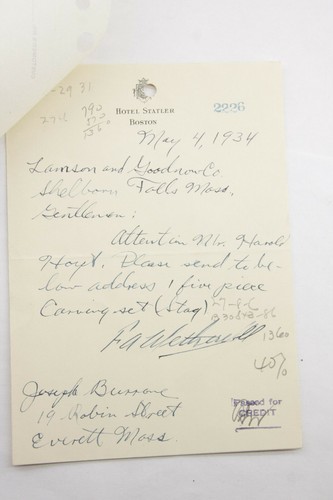 -29 31
790
570
HOTEL STATLER
BOSTON
2226
May 4, 1934
Lamson and Goodnow Co
Shelburn Falls Mass.
Gentlemen:
Attention Mr. Harold
Hoyt. Please send to be-
low address 1 five piece
Carving set (Stag)
27-8-C
1360
40%
Joseph Burrone
19 Robin Street
Everett Mass.
for
CREDIT